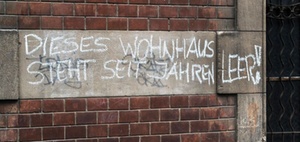 DIESES WOHNHAUS
STEHT SEIT JAHREN LEER!!